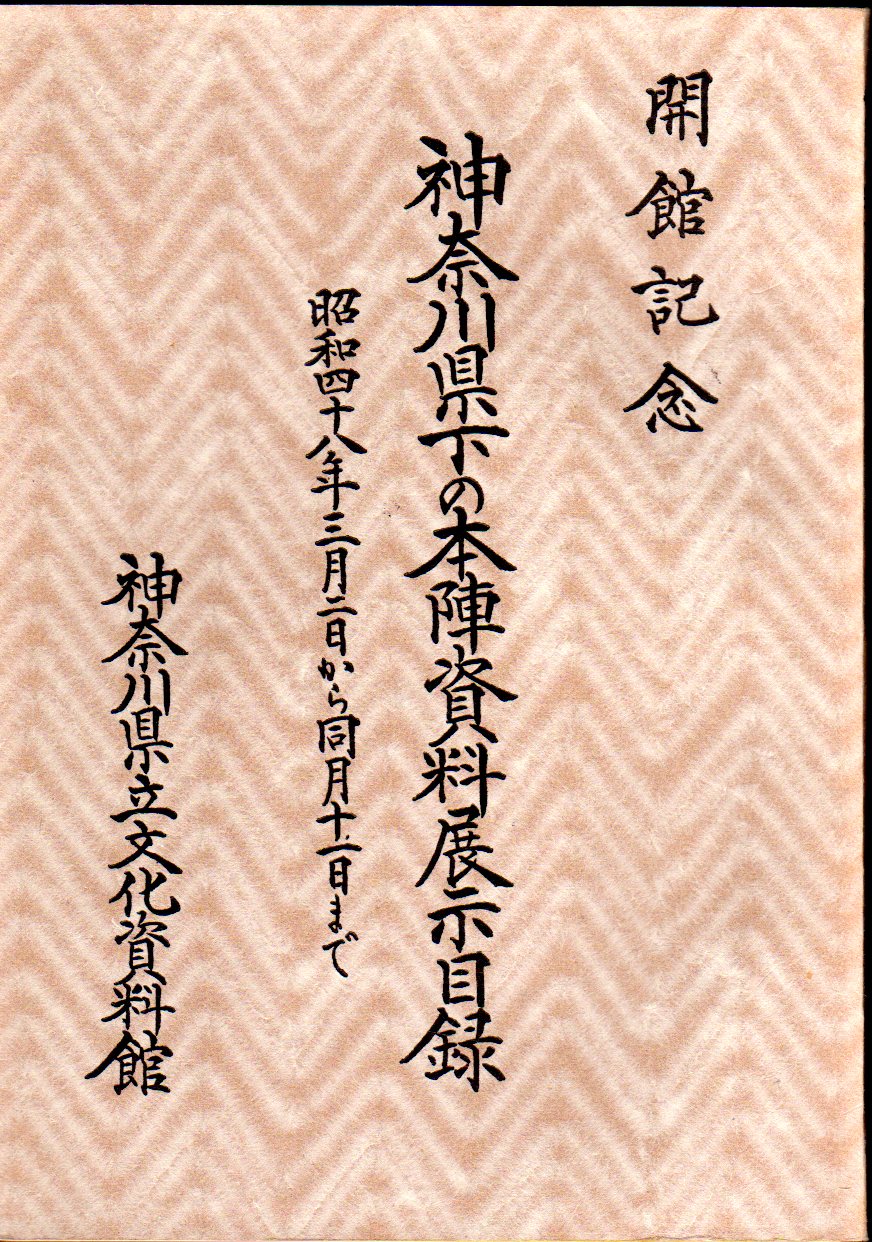 開館記念
神奈川県下の本陣資料展示目録
昭和四十八年三月二日から同月十一日まで
神奈川県立文化資料館